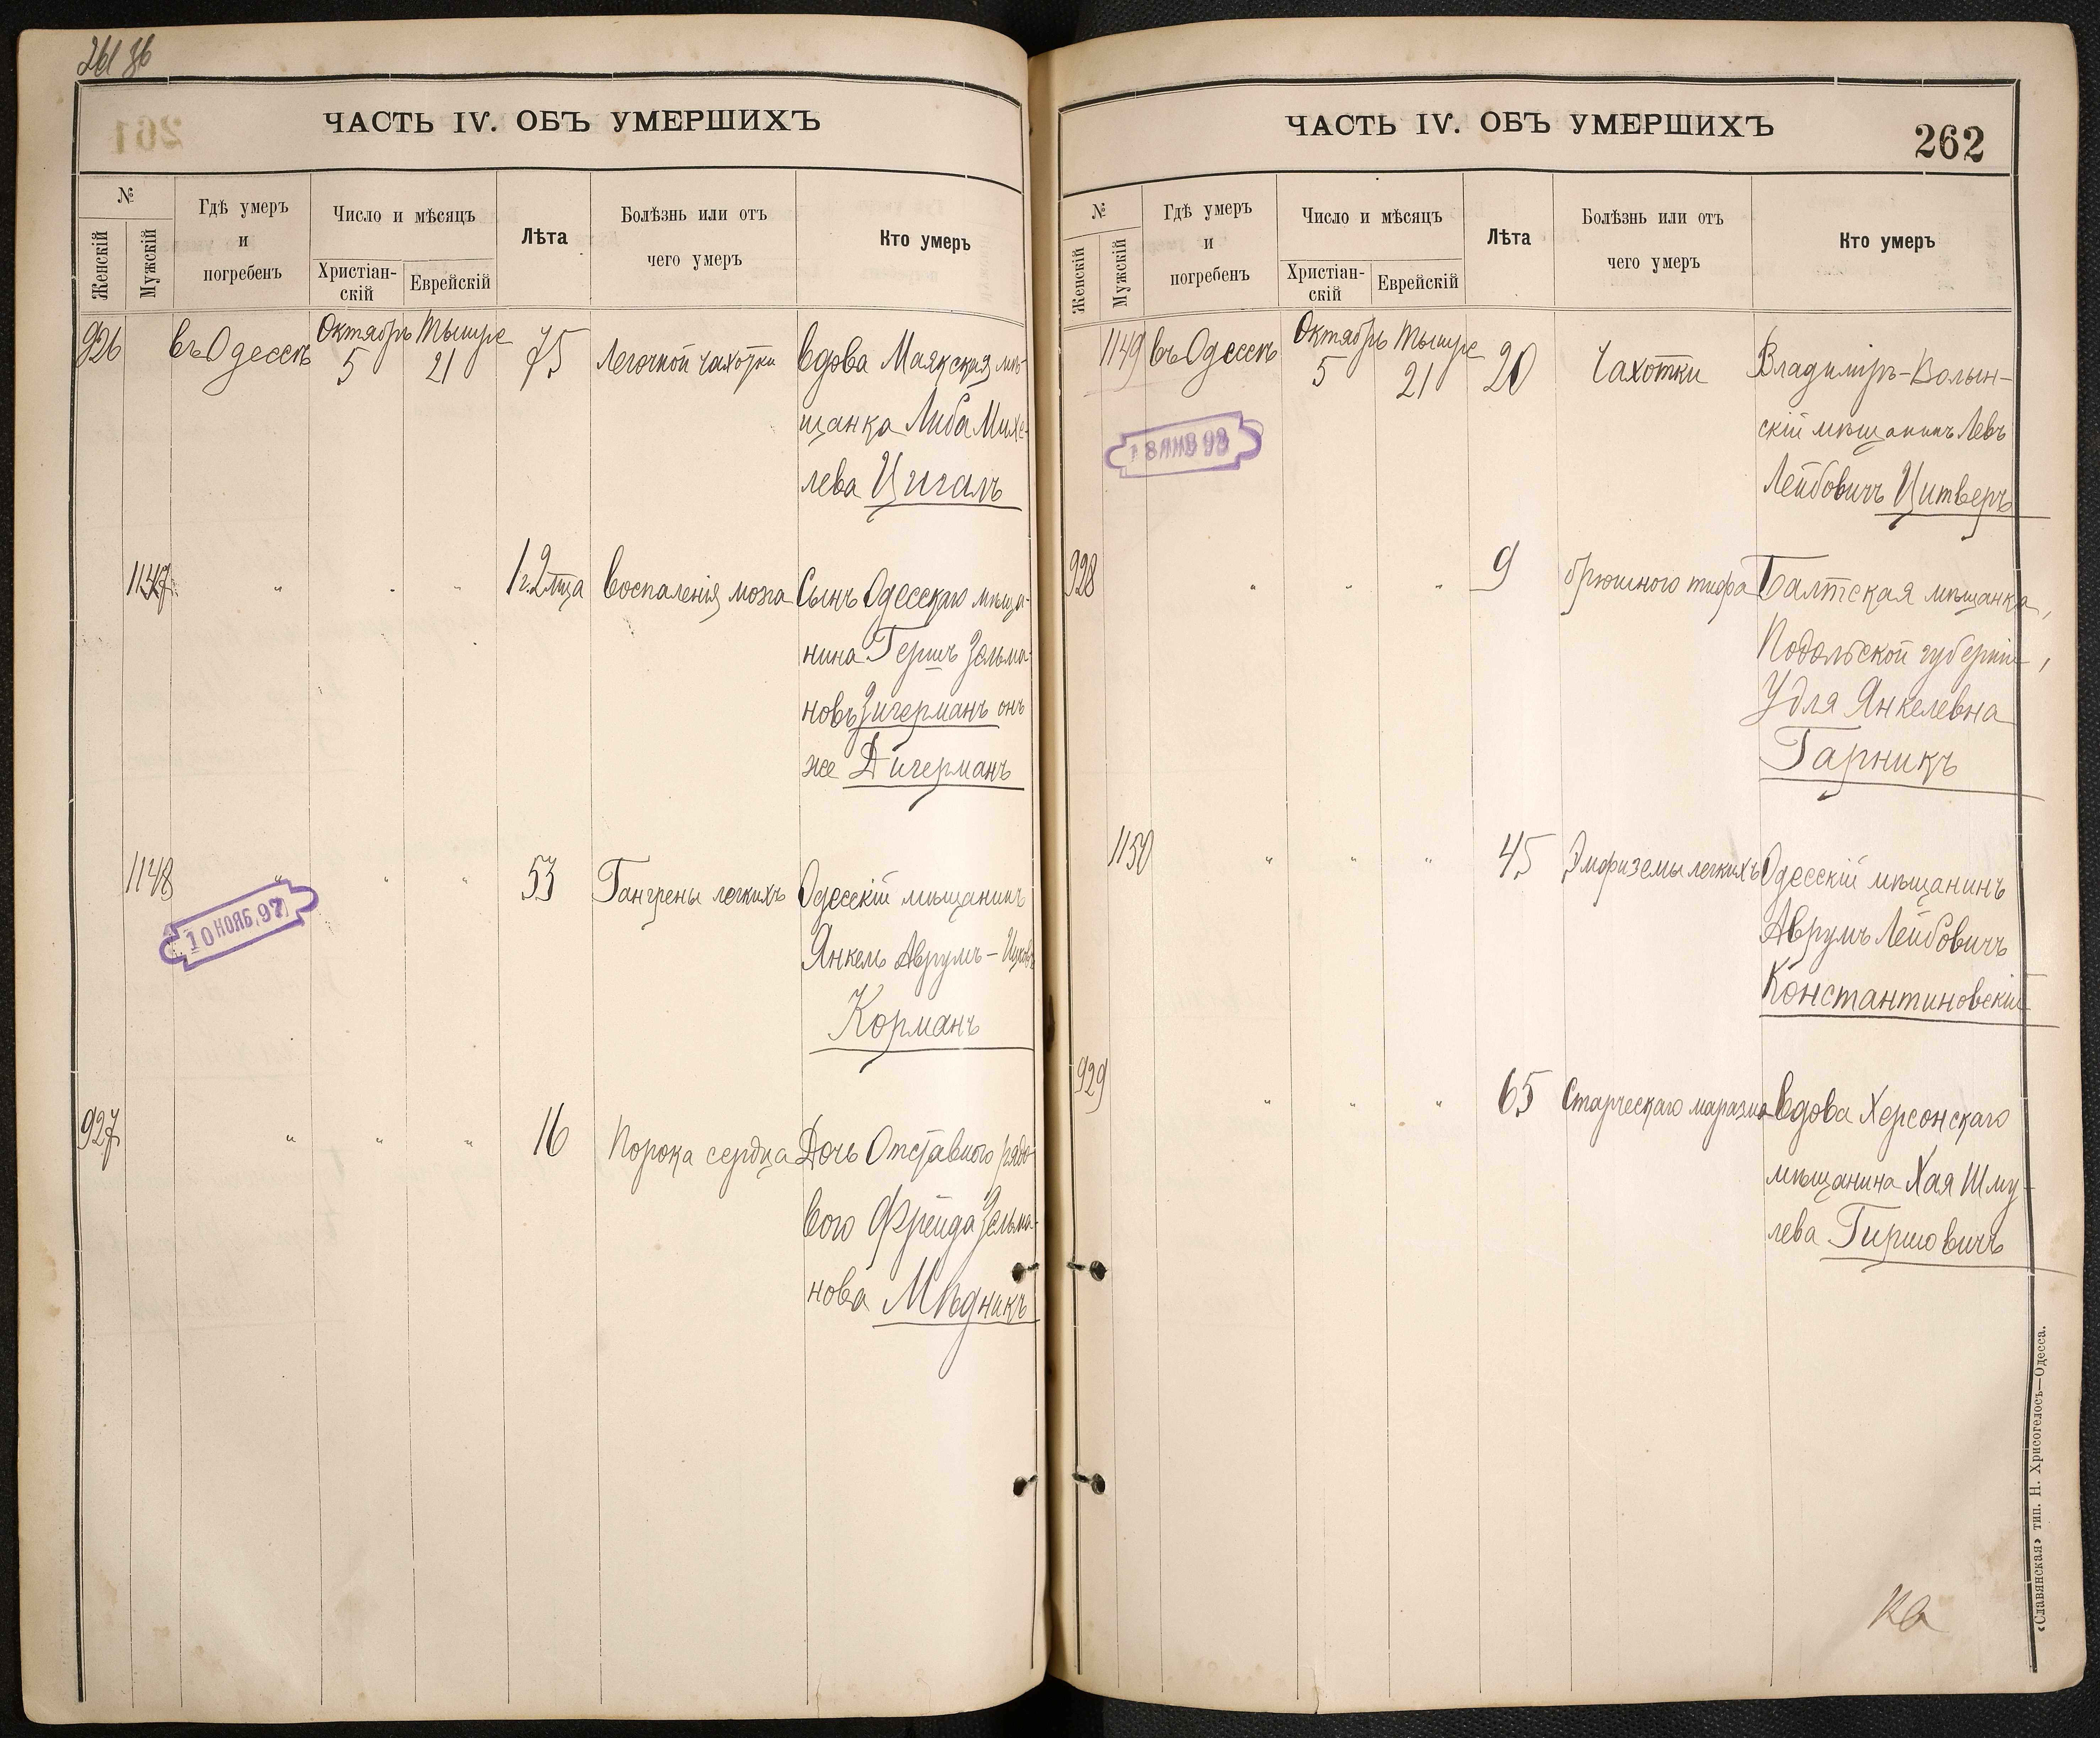 261 об
ЧАСТЬ IV. ОБЪ УМЕРШИХЪ
№
Женскій
Мужскій
Гдѣ умеръ
и
погребенъ
Число и мѣсяцъ
Христіан-
скій
Еврейскій
Лѣта
Болѣзнь или отъ
чего умеръ
Кто умеръ
926 въ Одессѣ Октябрь 5 Тышре 21 75 Легочной чахотки Вдова Маякская мѣ-
щанка Либа Михе-
лева Циганъ
1147 " " " 1 г. 2 м-ца Воспаленія мозга Сынъ Одесскаго мѣща-
нина Гершъ Зельма-
новъ Зигерманъ онъ
же Дигерманъ
1148 " " " 53 Гангрены легкихъ Одесскій мѣщанинъ
Янкель Аврумъ-
Корманъ
10 НОЯБ. 97
927 " " " 16 Порока сердца Дочь Отставного рядо-
вого Фрейда Зельма-
нова Мѣдникъ
ЧАСТЬ IV. ОБЪ УМЕРШИХЪ
262
№
Женскій
Мужскій
Гдѣ умеръ
и
погребенъ
Число и мѣсяцъ
Христіан-
скій
Еврейскій
Лѣта
Болѣзнь или отъ
чего умеръ
Кто умеръ
1149 въ Одессѣ Октябрь 5 Тышре 21 20 Чахотки Владиміръ-Волын-
скій мѣщанинъ Левъ
Лейбовичъ Цитверъ
18 ЯНВ 98
928 " " " 9 брюшного тифа Балтская мѣщанка,
Подольской губерніи,
Удля Янкелевна
Гарникъ
1150 " " " 45 Эмфиземы легкихъ Одесскій мѣщанинъ
Аврумъ Лейбовичъ
Константиновскій
929 " " " 65 Старческаго маразма Вдова Херсонскаго
мѣщанина Хая Шму-
лева Гиршовичъ
«Славянская» тип. Н. Хрисогелосъ—Одесса.